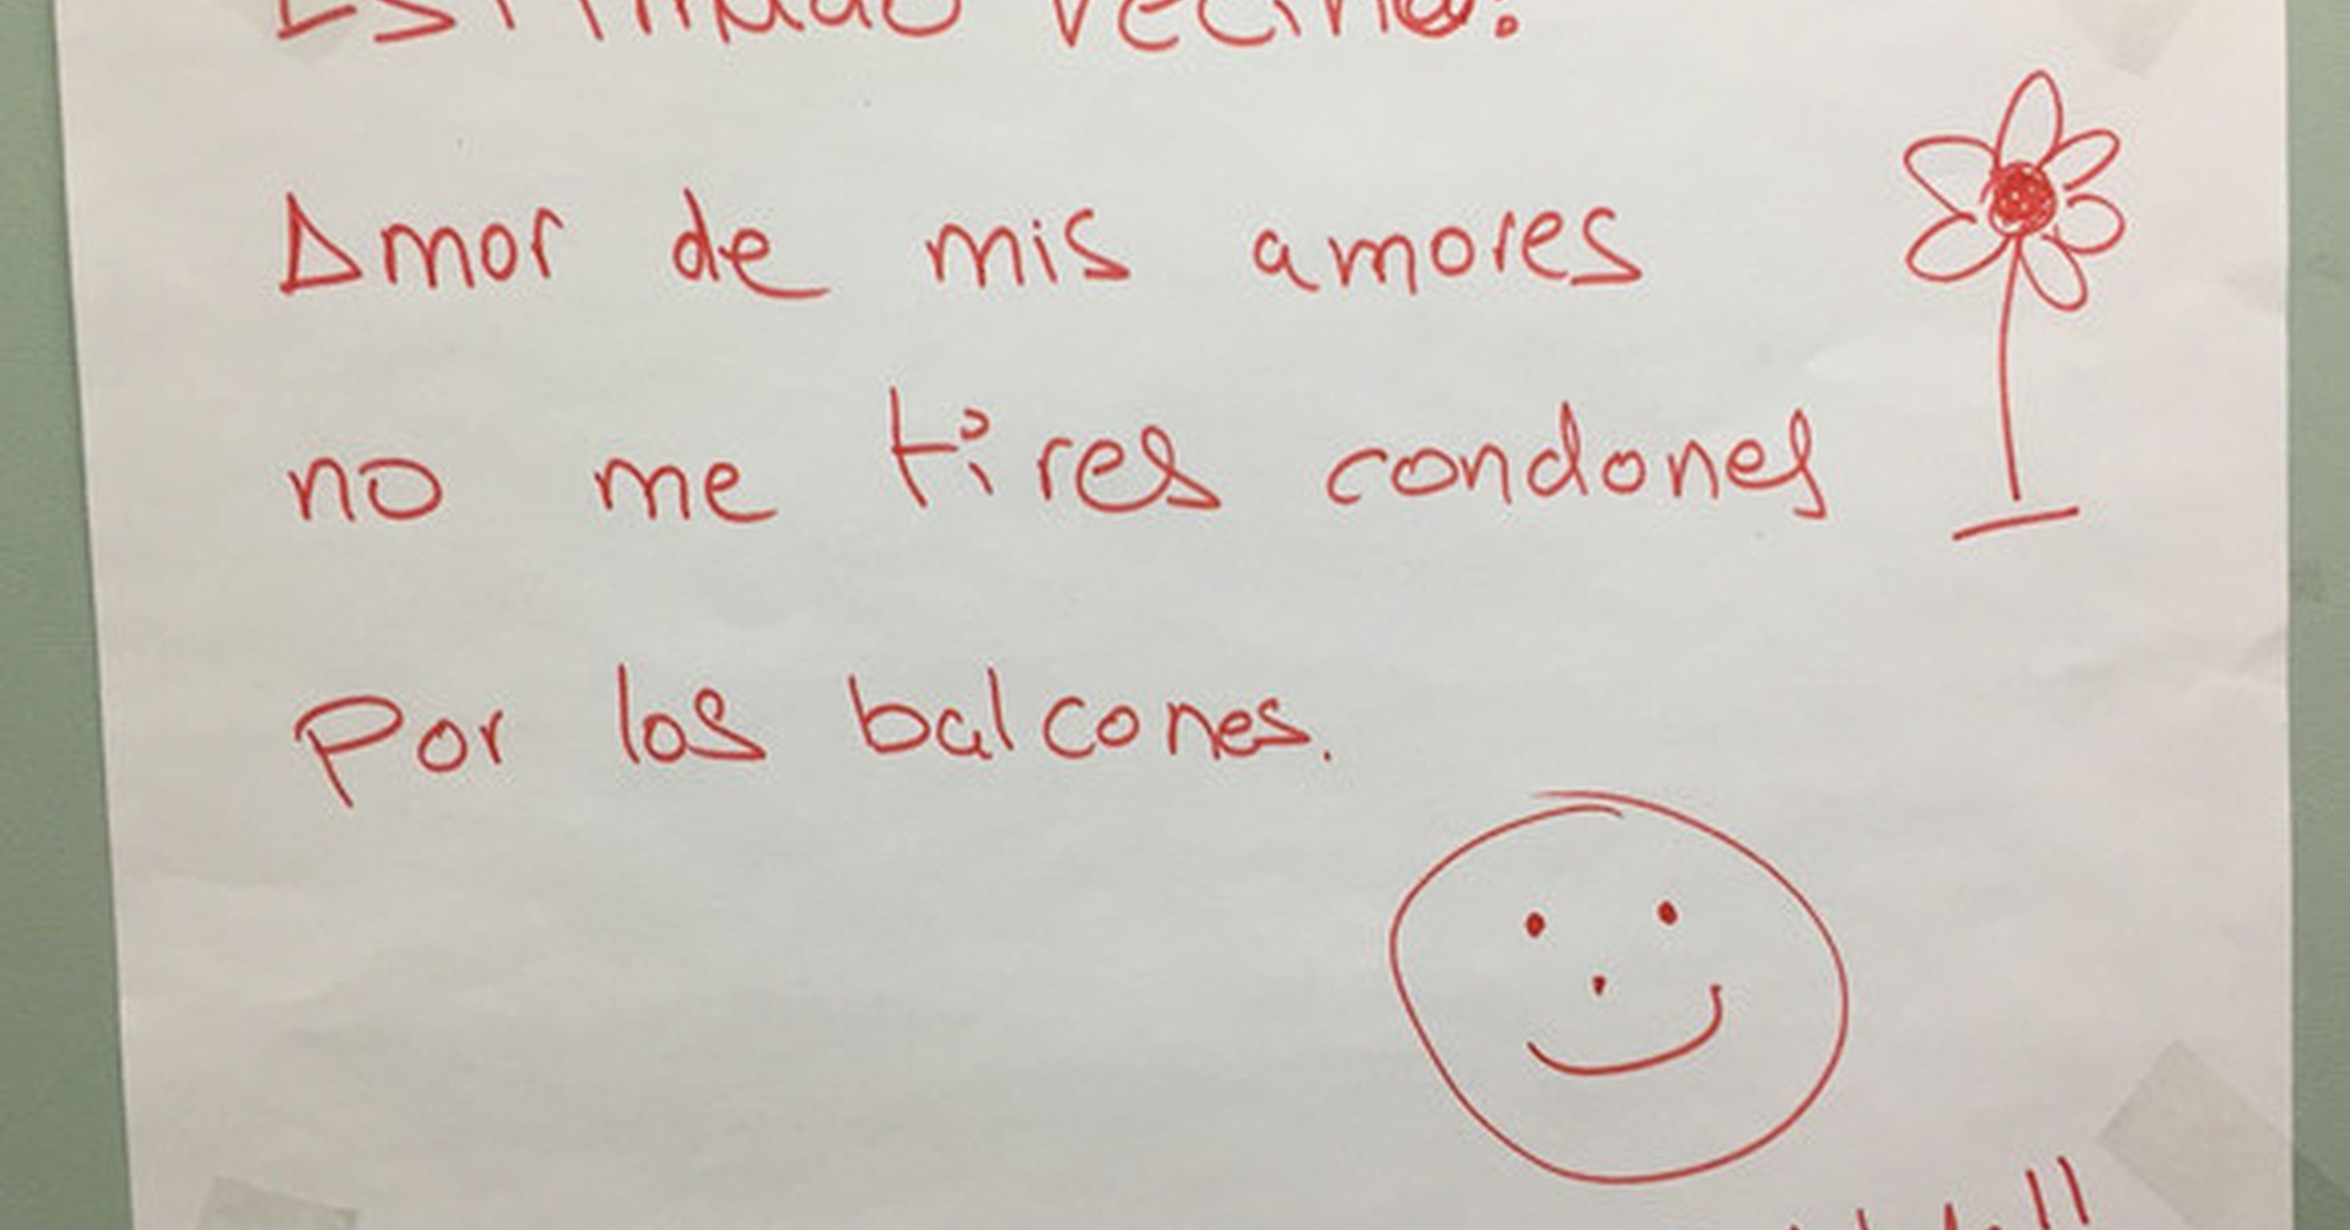 Estimado vecino:
Amor de mis amores
no me tires condones
por los balcones.